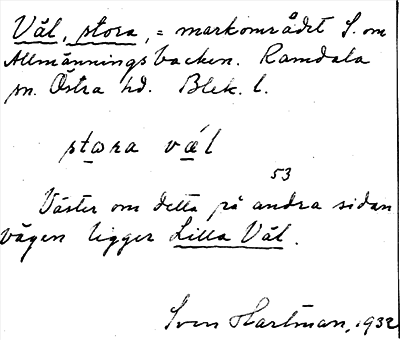 Väl, stora, = markområdet S. om
Allmänningsbacken. Ramdala
sn. Östra hd. Blek. l.
stora väl
53
Väster om detta på andra sidan
vägen ligger Lilla Väl.
Sven Hartman, 1932